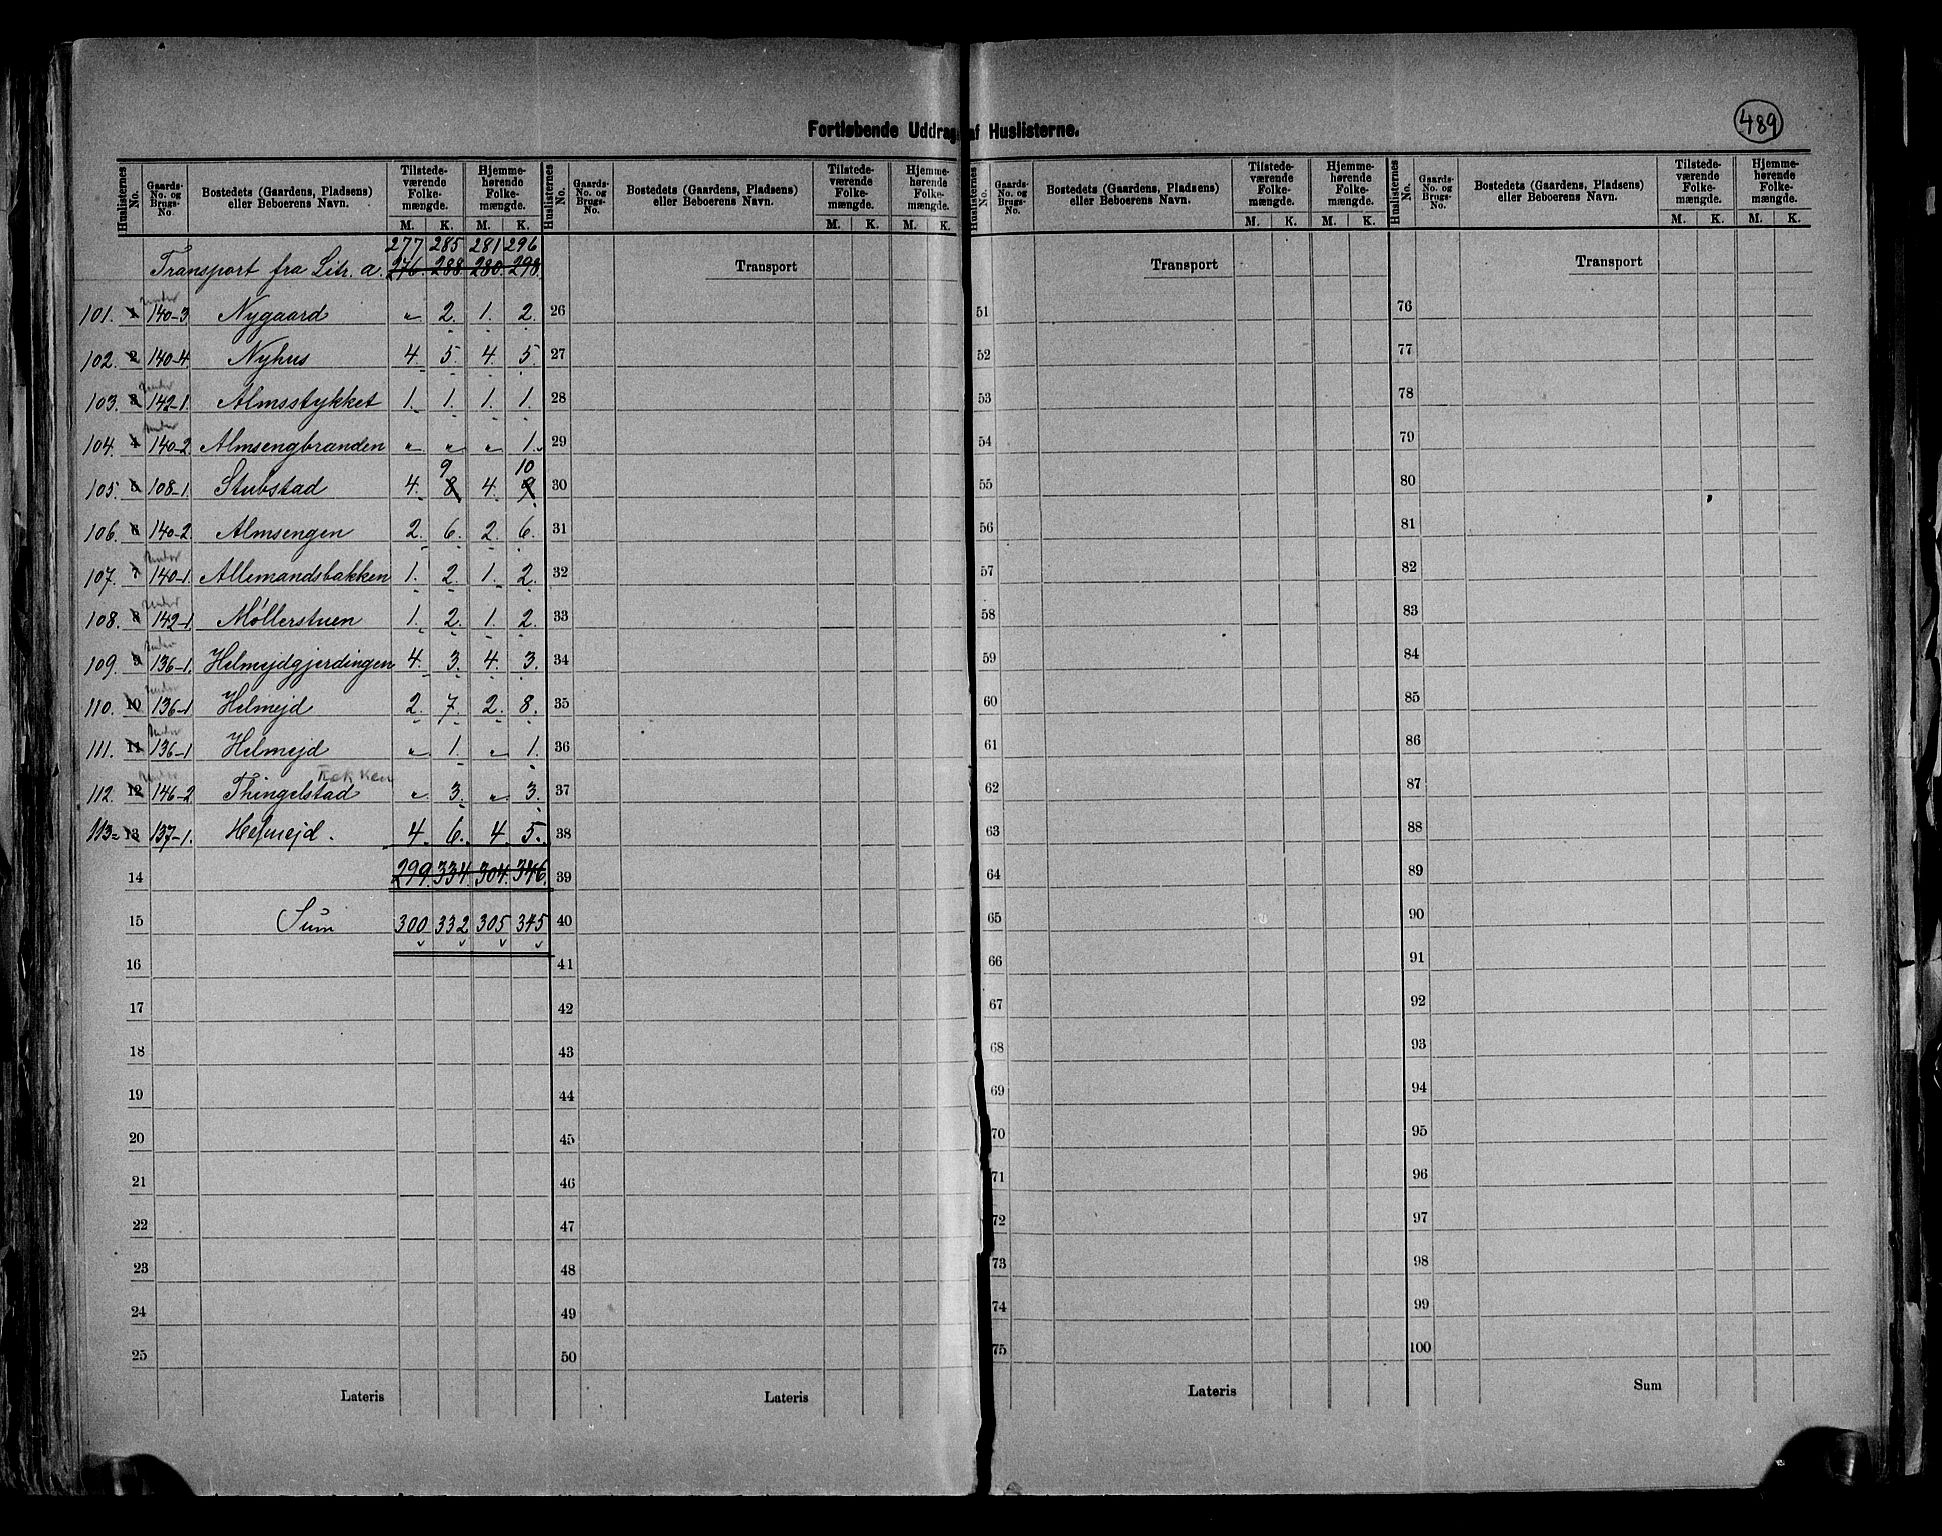 489
Fortløbende Uddrag af Huslisterne.
Huslisternes No. | Gaards-No. og Brugs-No. | Bostedets (Gaardens, Pladsens) eller Beboerens Navn. | Tilstedeværende Folkemængde. M. K. | Hjemmehørende Folkemængde. M. K.
277 285 281 296
Transport fra Litr. a. 276. 288 280. 298.
101. 1 under 140-3 Nygaard " 2. 1. 2.
102. 2 140-4 Nyhus 4. 5. 4. 5.
103. 3 under 142-1. Almsstykket 1. 1. 1. 1.
104. 4 under 140-2 Almsengbraaden " " " 1.
9 10
105. 5 108-1. Stubstad 4. 8 4. 9.
106. 6 140-2. Almsengen 2. 6. 2. 6.
107. 7 under 140-1. Allemandsbakken 1. 2. 1. 2.
108. 8 under 142-1 Møllerstuen 1. 2. 1. 2.
109. 9 under 136-1. Helmejdgjerdingen 4. 3. 4. 3.
110. 10 under 136-1 Helmejd 2. 7. 2. 8.
111. 11 under 136-1 Helmejd " 1. " 1.
112. 12 under 146-2 Thingelstad " 3. " 3.
113 13 137-1. Helmejd. 4. 6. 4. 5.
14 299. 334. 304. 346.
15 Sum 300 332 305 345
16
17
18
19
20
21
22
23
24
25
Lateris
Huslisternes No. | Gaards-No. og Brugs-No. | Bostedets (Gaardens, Pladsens) eller Beboerens Navn. | Tilstedeværende Folkemængde. M. K. | Hjemmehørende Folkemængde. M. K.
Transport
26
27
28
29
30
31
32
33
34
35
36
37
38
39
40
41
42
43
44
45
46
47
48
49
50
Lateris
Huslisternes No. | Gaards-No. og Brugs-No. | Bostedets (Gaardens, Pladsens) eller Beboerens Navn. | Tilstedeværende Folkemængde. M. K. | Hjemmehørende Folkemængde. M. K.
Transport
51
52
53
54
55
56
57
58
59
60
61
62
63
64
65
66
67
68
69
70
71
72
73
74
75
Lateris
Huslisternes No. | Gaards-No. og Brugs-No. | Bostedets (Gaardens, Pladsens) eller Beboerens Navn. | Tilstedeværende Folkemængde. M. K. | Hjemmehørende Folkemængde. M. K.
Transport
76
77
78
79
80
81
82
83
84
85
86
87
88
89
90
91
92
93
94
95
96
97
98
99
100
Sum